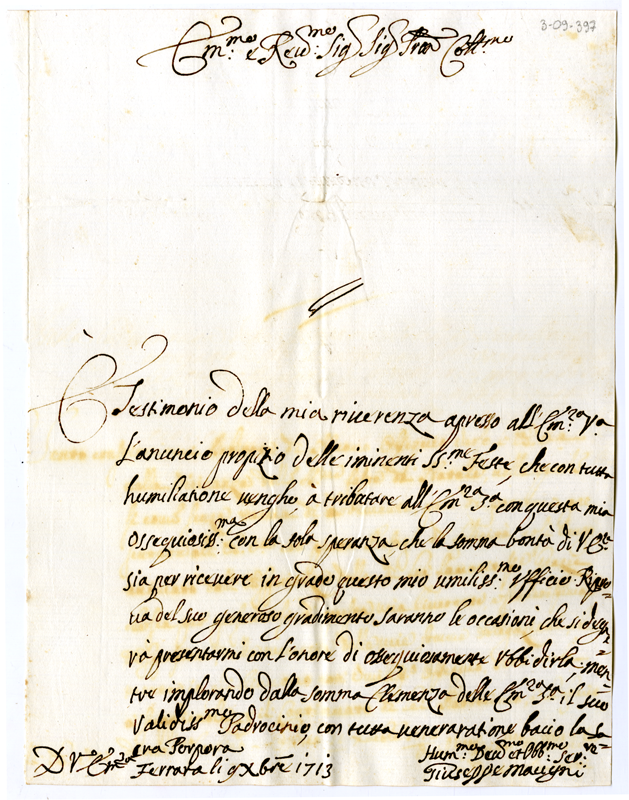 3-09-397
Em.mo e Rev.mo Sig Sig Pron Coll.mo
È Testimonio della mia riverenza apresso all'Em.za V.a
L'anuncio propizio delle iminenti SS.me Feste, che con tutta
humiliatione venghe, à tributare all'Em.za S.a con questa mia
Ossequiosiss.ma con la sola speranza, che la somma bontà di V.Em.za
sia per ricevere in grado questo mio umiliss.mo Ufficio Ripro=
va del suo generoso gradimento saranno le occasioni, che si degne=
rà presentarmi con L'onore di ossequiosamente Ubbidirla, men=
tre implorando dalla somma Clemenza delle Em.za S.a il suo
Validiss.mo Padrocinio, con tutta veneraratione bacio la Sa
cra Porpora
D V.a Em.za Ferrara li 9 Xbre 1713
Hum.mo Dev.mo et Obb.mo Ser.re
Giuseppe Macigni